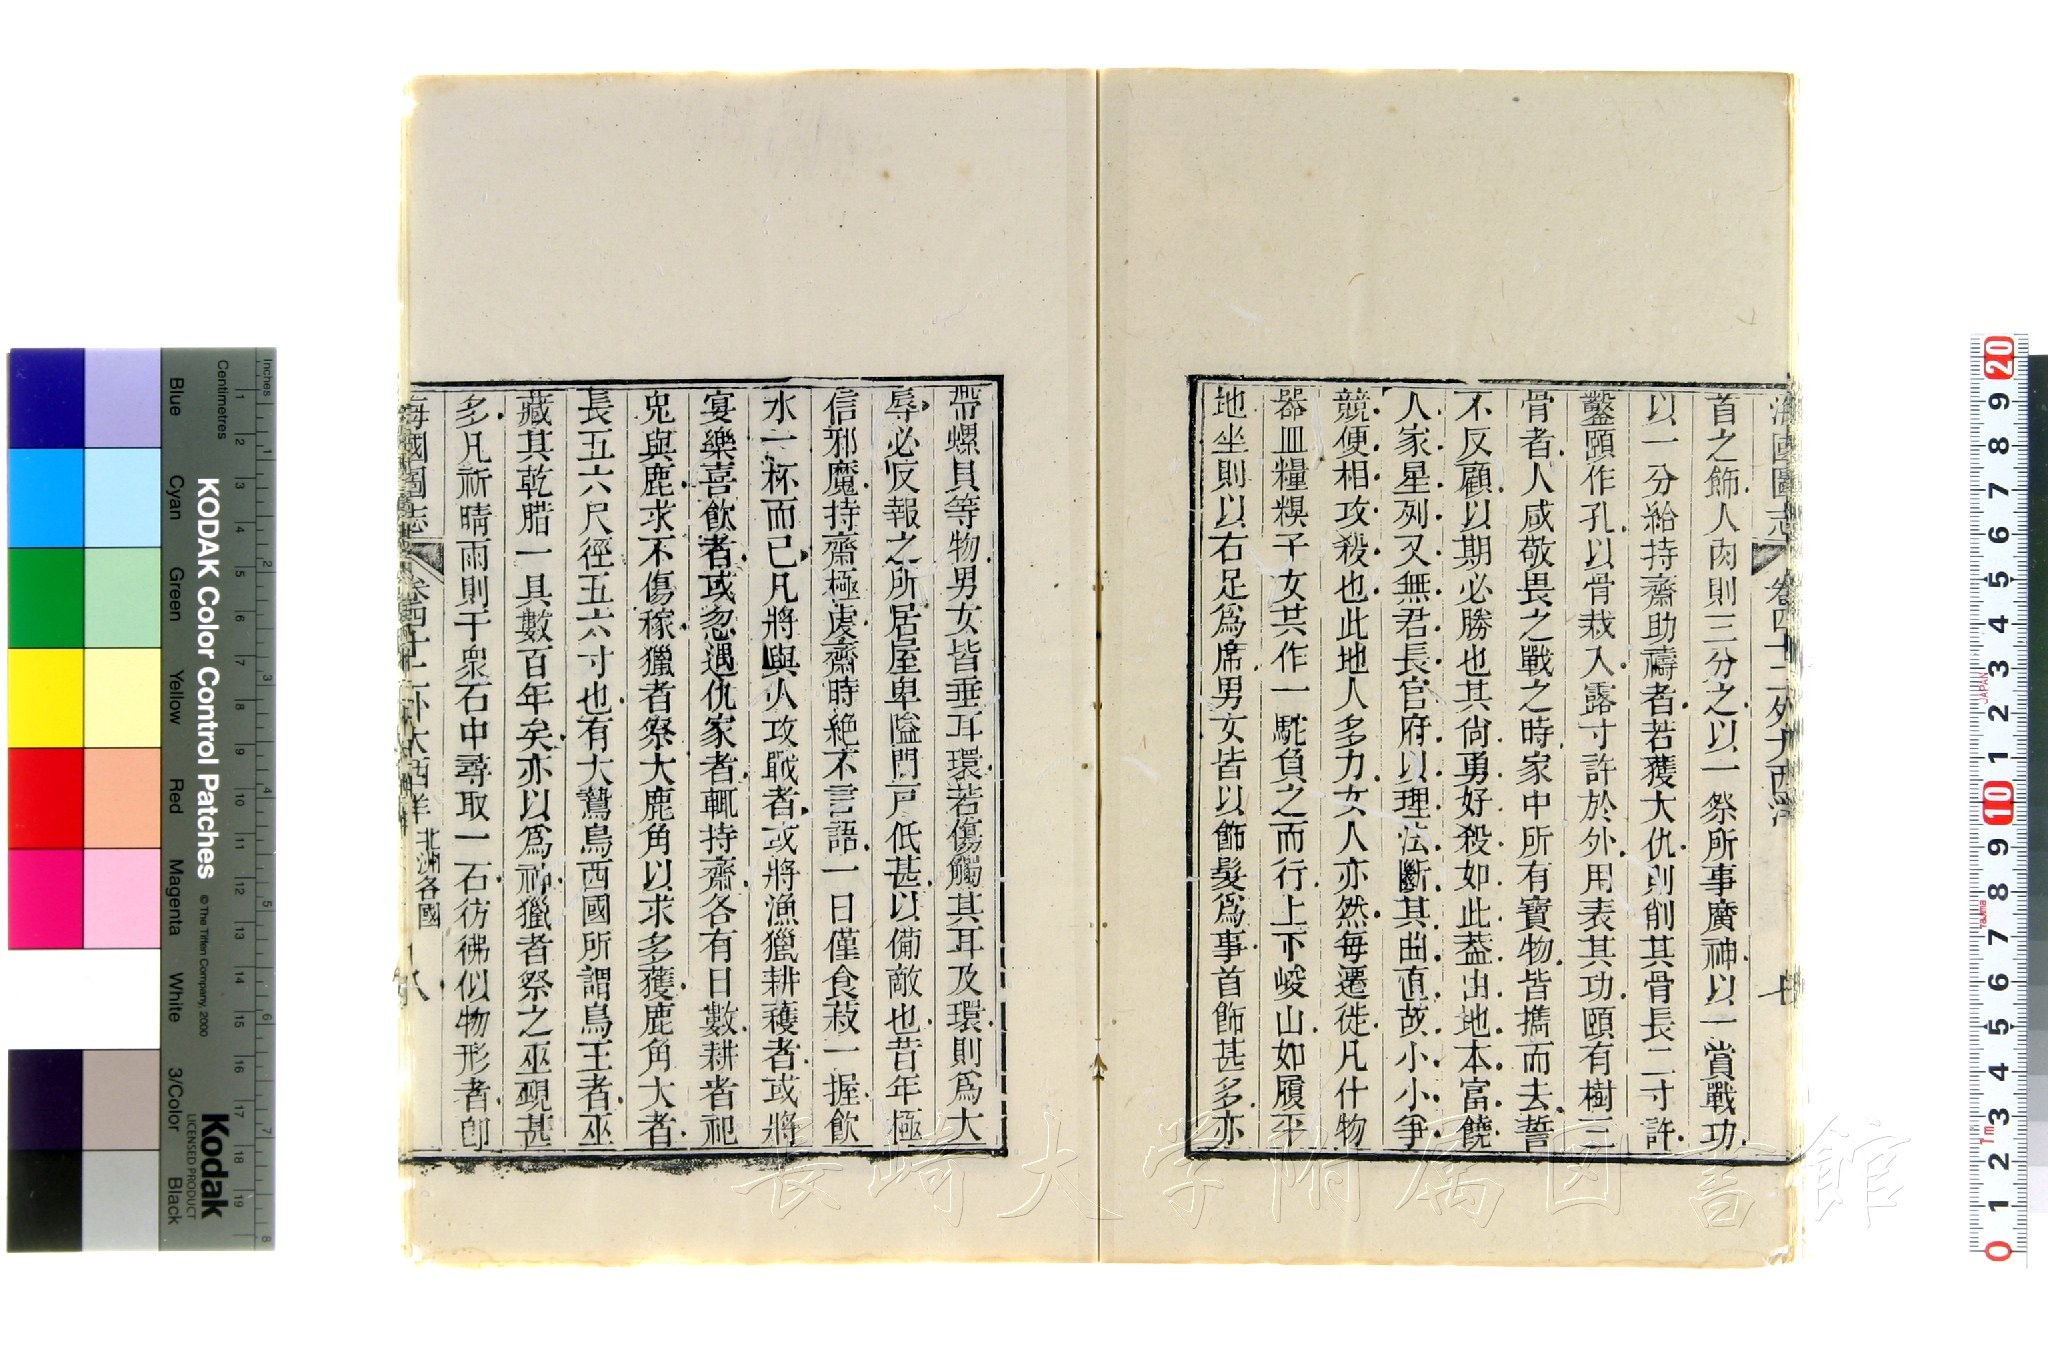 海國圖志 卷四十二 外大西洋 七
首之飾人肉則三分之以一祭所事廣神以一賞戰功
以一分給持齋助禱者若獲大仇則削其骨長二寸許
鑿頤作孔以骨栽入露寸許於外用表其功頤有樹三
骨者人咸敬畏之戰之時家中所有寶物皆攜而去誓
不反顧以期必勝也其尙勇好殺如此葢由地本富饒
人家星列又無君長官府以理法斷其曲直故小小爭
競便相攻殺也此地人多力女人亦然每遷徙凡什物
器皿糧糗子女共作一駝負之而行上下峻山如履平
地坐則以右足爲席男女皆以飾髮爲事首飾甚多亦
帶螺貝等物男女皆垂耳環若傷觸其耳及環則爲大
辱必反報之所居屋卑隘門戸低甚以備敵也昔年極
信邪魔持齋極虔齋時絶不言語一日僅食菽一握飲
水一杯而已凡將與人攻戰者或將漁獵耕穫者或將
宴樂喜飲者或忽遇仇家者輒持齋各有日數耕者祀
兎與鹿求不傷稼獵者祭大鹿角以求多獲鹿角大者
長五六尺徑五六寸也有大鷙鳥西國所謂鳥王者巫
藏其乾腊一具數百年矣亦以爲神獵者祭之巫覡甚
多凡祈晴雨則于衆石中尋取一石彷彿似物形者卽
海國圖志 卷四十二 外大西洋 北洲各國 八
KODAK Color Control Patches
© The Tiffen Company, 2000
Kodak
LICENSED PRODUCT
Inches
Centimetres
Blue
Cyan
Green
Yellow
Red
Magenta
White
3/Color
Black
1 2 3 4 5 6 7 8
1 2 3 4 5 6 7 8 9 10 11 12 13 14 15 16 17 18 19
20 9 8 7 6 5 4 3 2 1 10 9 8 7 6 5 4 3 2 1 0
JAPAN
長崎大学附属図書館